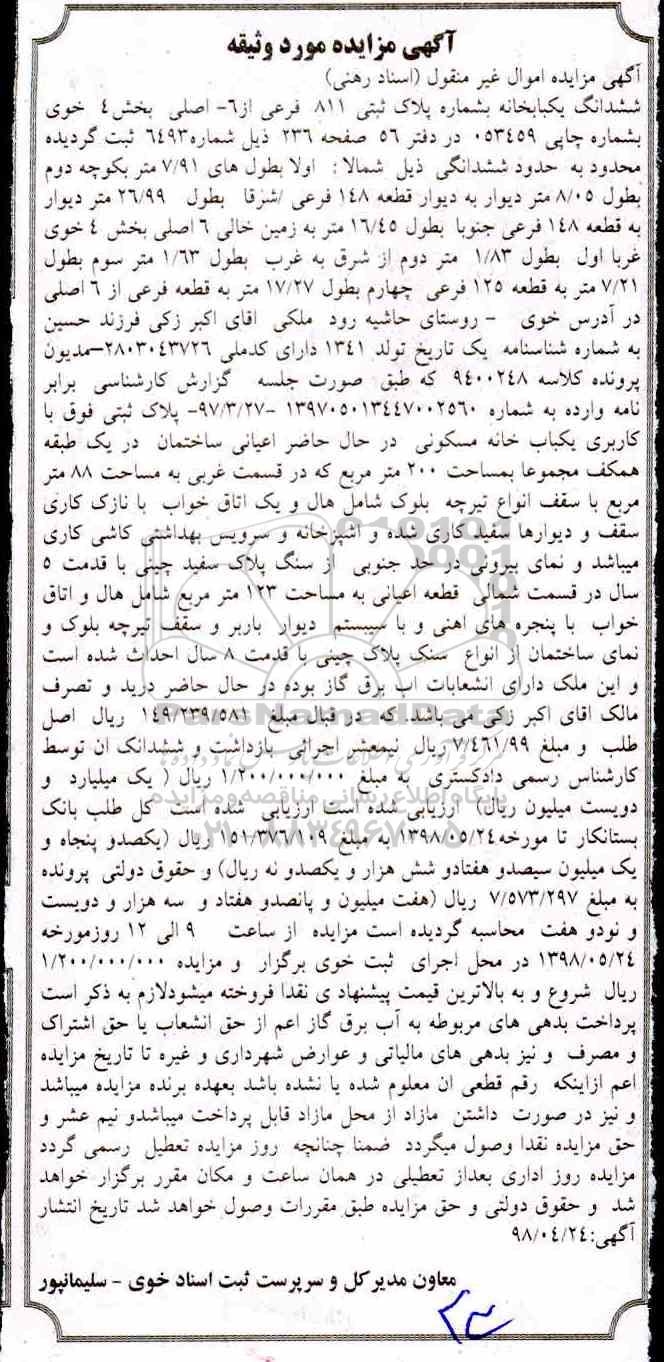 آگهی مزایده مورد وثیقه
آگهی مزایده اموال غیر منقول (اسناد رهنی)
ششدانگ یکبابخانه بشماره پلاک ثبتی ۸۱۱ فرعی از۶- اصلی بخش۴ خوی
بشماره چاپی ۰۵۳۴۵۹ در دفتر ۵۶ صفحه ۲۳۶ ذیل شماره۶۴۹۳ ثبت گردیده
محدود به حدود ششدانگی ذیل شمالا : اولا بطول های ۷/۹۱ متر بکوچه دوم
بطول ۸/۰۵ متر دیوار به دیوار قطعه ۱۴۸ فرعی /شرقا بطول ۲۶/۹۹ متر دیوار
به قطعه ۱۴۸ فرعی جنوبا بطول ۱۶/۴۵ متر به زمین خالی ۶ اصلی بخش ۴ خوی
غربا اول بطول ۱/۸۳ متر دوم از شرق به غرب بطول ۱/۶۳ متر سوم بطول
۷/۲۱ متر به قطعه ۱۲۵ فرعی چهارم بطول ۱۷/۲۷ متر به قطعه فرعی از ۶ اصلی
در آدرس خوی - روستای حاشیه رود ملکی اقای اکبر زکی فرزند حسین
به شماره شناسنامه یک تاریخ تولد ۱۳۴۱ دارای کدملی ۲۸۰۳۰۴۳۷۲۶–مدیون
پرونده کلاسه ۹۴۰۰۲۴۸ که طبق صورت جلسه گزارش کارشناسی برابر
نامه وارده به شماره ۱۳۹۷۰۵۰۱۳۴۴۷۰۰۲۵۶۰ -۹۷/۳/۲۷- پلاک ثبتی فوق با
کاربری یکباب خانه مسکونی در حال حاضر اعیانی ساختمان در یک طبقه
همکف مجموعا بمساحت ۲۰۰ متر مربع که در قسمت غربی به مساحت ۸۸ متر
مربع با سقف انواع تیرچه بلوک شامل هال و یک اتاق خواب با نازک کاری
سقف و دیوارها سفید کاری شده و اشپزخانه و سرویس بهداشتی کاشی کاری
میباشد و نمای بیرونی در حد جنوبی از سنگ پلاک سفید چینی با قدمت ۵
سال در قسمت شمالی قطعه اعیانی به مساحت ۱۲۳ متر مربع شامل هال و اتاق
خواب با پنجره های اهنی و با سیستم دیوار باربر و سقف تیرچه بلوک و
نمای ساختمان از انواع سنگ پلاک چینی با قدمت ۸ سال احداث شده است
و این ملک دارای انشعابات اب برق گاز بوده در حال حاضر درید و تصرف
مالک اقای اکبر زکی می باشد. که در قبال مبلغ ۱۴۹/۲۳۹/۵۸۱ ریال اصل
طلب و مبلغ ۷/۴۶۱/۹۹ ریال نیمعشر اجرائی بازداشت و ششدانک ان توسط
کارشناس رسمی دادگستری به مبلغ ۱/۲۰۰/۰۰۰/۰۰۰ ریال ( یک میلیارد و
دویست میلیون ریال) ارزیابی شده است ارزیابی شده است کل طلب بانک
بستانکار تا مورخه۱۳۹۸/۰۵/۲۴ به مبلغ ۱۵۱/۳۷۶/۱۰۹ ریال (یکصدو پنجاه و
یک میلیون سیصدو هفتادو شش هزار و یکصدو نه ریال) و حقوق دولتی پرونده
به مبلغ ۷/۵۷۳/۲۹۷ ریال (هفت میلیون و پانصدو هفتاد و سه هزار و دویست
و نودو هفت محاسبه گردیده است مزایده از ساعت ۹ الی ۱۲ روزمورخه
۱۳۹۸/۰۵/۲۴ در محل اجرای ثبت خوی برگزار و مزایده ۱/۲۰۰/۰۰۰/۰۰۰
ریال شروع و به بالاترین قیمت پیشنهاد ی نقدا فروخته میشودلازم به ذکر است
پرداخت بدهی های مربوطه به آب برق گاز اعم از حق انشعاب یا حق اشتراک
و مصرف و نیز بدهی های مالیاتی و عوارض شهرداری و غیره تا تاریخ مزایده
اعم ازاینکه رقم قطعی ان معلوم شده یا نشده باشد بعهده برنده مزایده میباشد
و نیز در صورت داشتن مازاد از محل مازاد قابل پرداخت میباشدو نیم عشر و
حق مزایده نقدا وصول میگردد ضمنا چنانچه روز مزایده تعطیل رسمی گردد
مزایده روز اداری بعداز تعطیلی در همان ساعت و مکان مقرر برگزار خواهد
شد و حقوق دولتی و حق مزایده طبق مقررات وصول خواهد شد تاریخ انتشار
آگهی:۹۸/۰۴/۲۴
معاون مدیرکل و سرپرست ثبت اسناد خوی - سلیمانپور
ParsNamadData
پایگاه اطلاع رسانی مناقصه و مزایده
۰۲۱-۸۸۳۴۹۶۷۰-۵